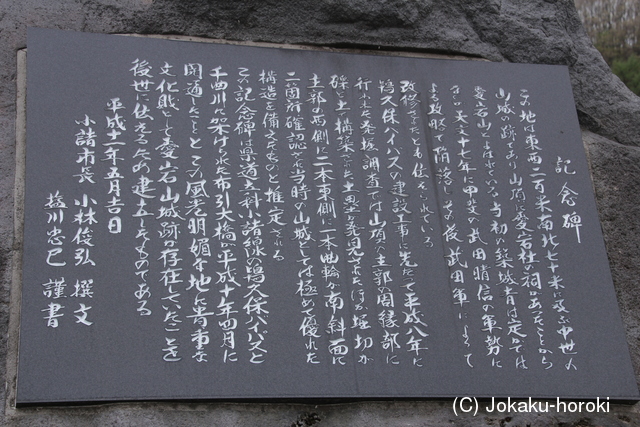 記念碑
この地は東西二百米南北七十米に及ぶ中世の
山城の跡であり山頂に愛宕社の祠があったことから
愛宕山とよばれている 当初の築城者は定かでは
ないが天文十七年に甲斐の武田晴信の軍勢に
よる攻略で陥落しその後武田軍によって
改修されたとも伝えられている
鴇久保バイパスの建設工事に先だって平成八年に
行われた発掘調査では山頂の主郭の周縁部に
礫と土で構築された土塁が発見されたほか堀切が
主郭の西側に二本東側に一本曲輪が南斜面に
二箇所確認され当時の山城としては極めて優れた
構造を備えたものと推定される
この記念碑は県道立科小諸線の鴇久保バイパスと
千曲川に架けられた布引大橋が平成十年四月に
開通したこととこの風光明媚な地に貴重な
文化財として愛宕山城跡が存在していたことを
後世に伝えるため建立したものである
平成十一年五月吉日
小諸市長 小林俊弘 撰文
塩川忠巳 謹書
(C) Jokaku-horoki